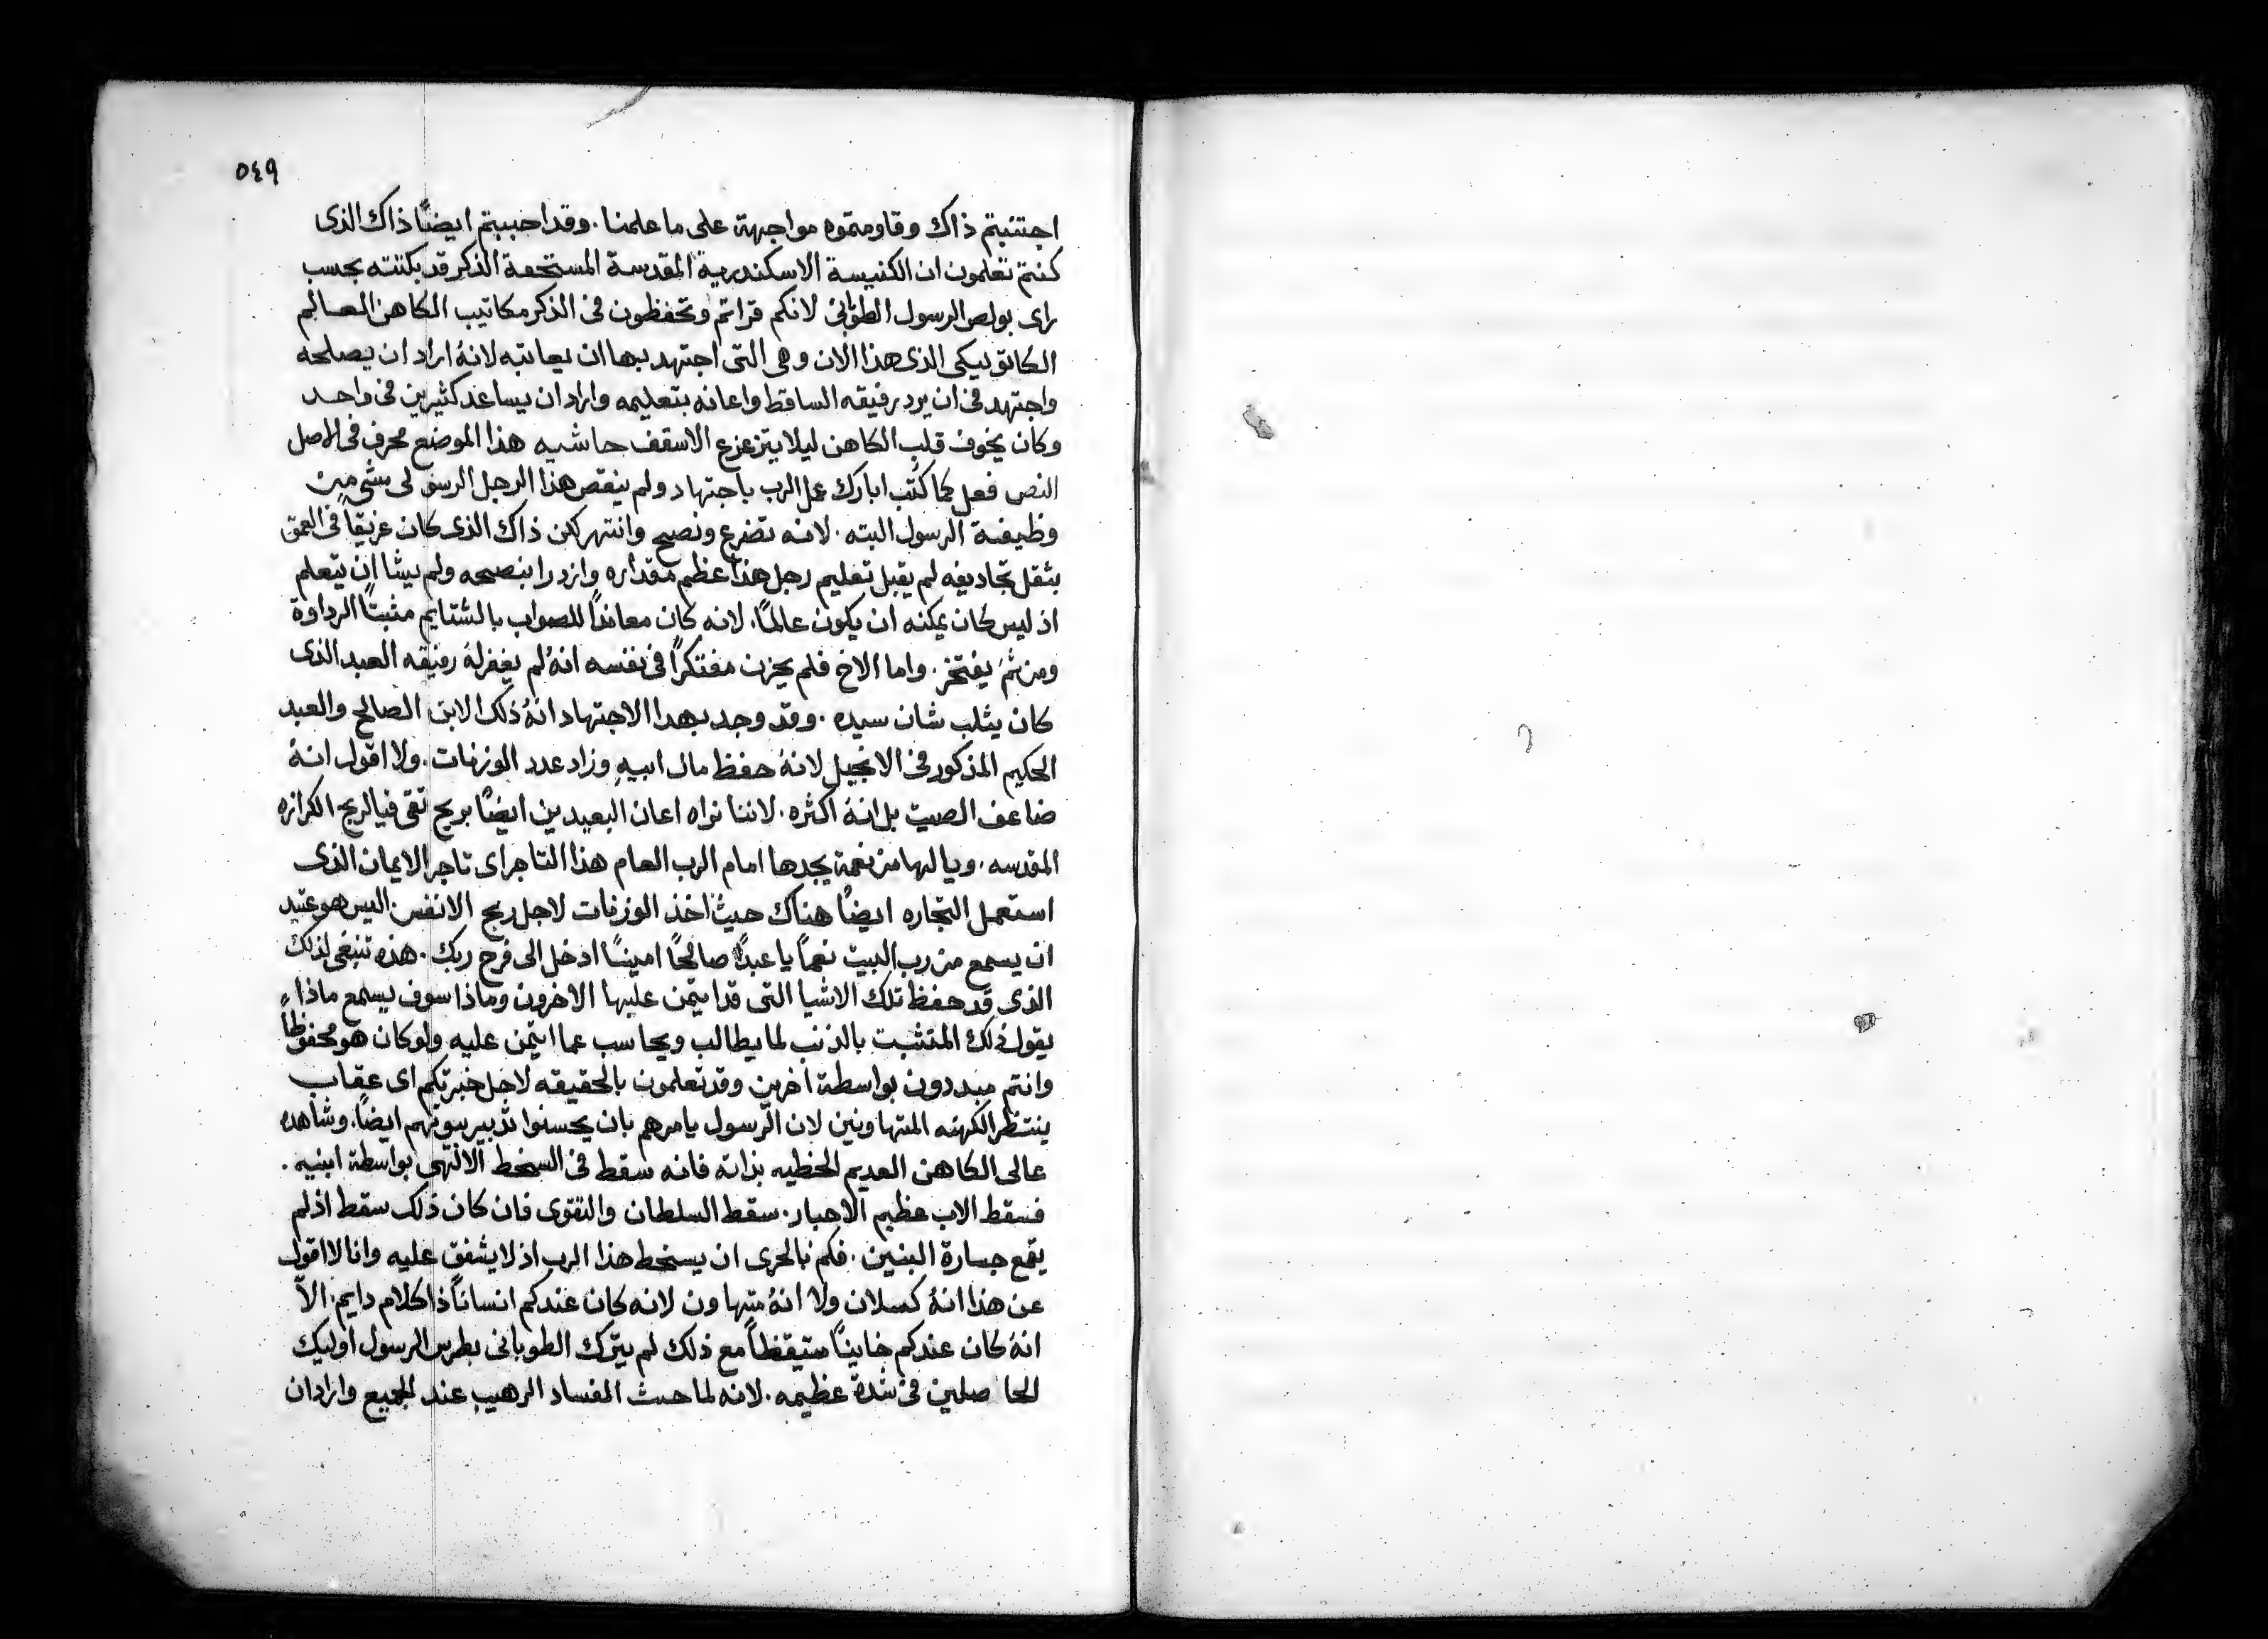 ٥٤٩
اجتنبتم ذاك وقاومتموه مواجهة على ما علمنا. وقد احببتم ايضًا ذاك الذى
كنتم تعلمون ان الكنيسة الاسكندرية المقدسة المستحقة الذكر قد بكتته بحسب
راى بولص الرسول الطوبانى لانكم قراتم وتحفظون فى الذكر مكاتيب الكاهن العالم
الكاتوليكى الذى هذا الان وهى التى اجتهد بها ان يعاتبه لانهُ اراد ان يصلحه
واجتهد فى ان يرد رفيقه الساقط واعانه بتعليمه واراد ان يساعد كثيرين فى واحد
وكان يخوف قلب الكاهن ليلا يتزعزع الاسقف حاشيه هذا الموضع محرف فى الاصل
النص فعل كما كُتب ابارك عمل الرب باجتهاد ولم ينقص هذا الرجل الرسولى بشى من
وظيفة الرسول البته. لانه تضرع ونصح وانتهر لكن ذاك الذى كان غريقاً فى العمق
بثقل تجاديفه لم يقبل تعليم رجل هذا عظم مقداره وازدرا بنصحه ولم يشا ان يتعلم
اذ ليس كان يمكنه ان يكون عالمًا. لانه كان معاندًا للصواب بالشتايم مثبتًا الرداوة
ومن ثمَ يفتخر. واما الاخ فلم يحزن مفتكرًا فى نفسه انهُ لم يغفر لهُ رفيقه العبد الذى
كان يثلب شان سيده. وقد وجد بهدا الاجتهاد انهُ ذلك الابن الصالح والعبد
الحكيم المذكور فى الانجيل لانهُ حفظ مال ابيهِ وزاد عدد الوزنات. ولا اقول انهُ
ضاعف الصيت بل انهُ اكثره. لاننا نراه اعان البعيدين ايضًا بربح تقى فيالربح الكرازه
المقدسه. ويا لها من نعمة يجدها امام الرب العام هذا التاجر اى تاجر الايمان الذى
استعمل التجاره ايضًا هناك حيث اخذ الوزنات لاجل ربح الانفس. اليس هو عتيد
ان يسمع من رب البيت نعمًا يا عبدًا صالحًا امينًا ادخل الى فرح ربك. هذه تنبغى لذلك
الذى قد حفظ تلك الاشيا التى قد ايتمن عليها الاخرون وماذا سوف يسمع ماذا
يقول ذلك المتشبت بالذنب لما يطالب ويحاسب عما ايتمن عليه ولو كان هو محفوظاً
وانتم مبددون بواسطة اخرين وقد تعلمون بالحقيقه لاجل خبرتكم اى عقاب
ينتظر الكهنه المتهاونين لان الرسول يامرهم بان يحسنوا تدبير بيوتهم ايضًا. وشاهده
عالى الكاهن العديم الخطيه بذاته فانه سقط فى السخط الالهى بواسطة ابنيه.
فسقط الاب عظيم الاحبار. سقط السلطان والتقوى فان كان ذلك سقط اذ لم
يقمع جسارة البنين. فكم بالحرى ان يسخط هذا الرب اذ لا يشفق عليه وانا لا اقول
عن هذا انهُ كسلان ولا انهُ متهاون لانه كان عندكم انساناً ذا كلام دايم. الاّ
انهُ كان عندكم خاينًا متيقظاً مع ذلك لم يترك الطوبانى بطرس الرسول اوليك
الحاصلين فى شدة عظيمه. لانه لما حسّ الفساد الرهيب عند الجميع واراد ان